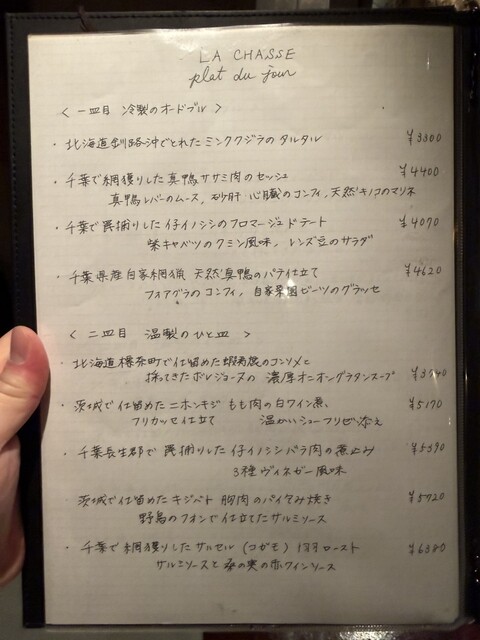 LA CHASSE
plat du jour
< 一皿目 冷製のオードブル >
・北海道釧路沖でとれたミンククジラのタルタル ¥3300
・千葉で網獲りした真鴨ササミ肉のセッシュ ¥4400
真鴨レバーのムース, 砂肝 心臓のコンフィ, 天然キノコのマリネ
・千葉で罠捕りした仔イノシシのフロマージュドテート ¥4070
紫キャベツのクミン風味, レンズ豆のサラダ
・千葉県産自家網猟 天然真鴨のパテ仕立て ¥4620
フォアグラのコンフィ, 自家菜園ビーツのグラッセ
< 二皿目 温製のひと皿 >
・北海道標茶町で仕留めた蝦夷鹿のコンソメと
採ってきたボレジョーヌの 濃厚オニオングラタンスープ
・茨城で仕留めたニホンキジ もも肉の白ワイン煮、 ¥5170
フリカッセ仕立て 温かいシューフリゼ添え
・千葉長生郡で罠捕りした仔イノシシバラ肉の煮込み ¥5390
3種ヴィネガー風味
・茨城で仕留めたキジバト 胸肉のパイ包み焼き ¥5720
野鳥のフォンで仕立てたサルミソース
・千葉で網獲りしたサルセル (コガモ) 1羽ロースト ¥6380
サルミソースと桑の実の赤ワインソース